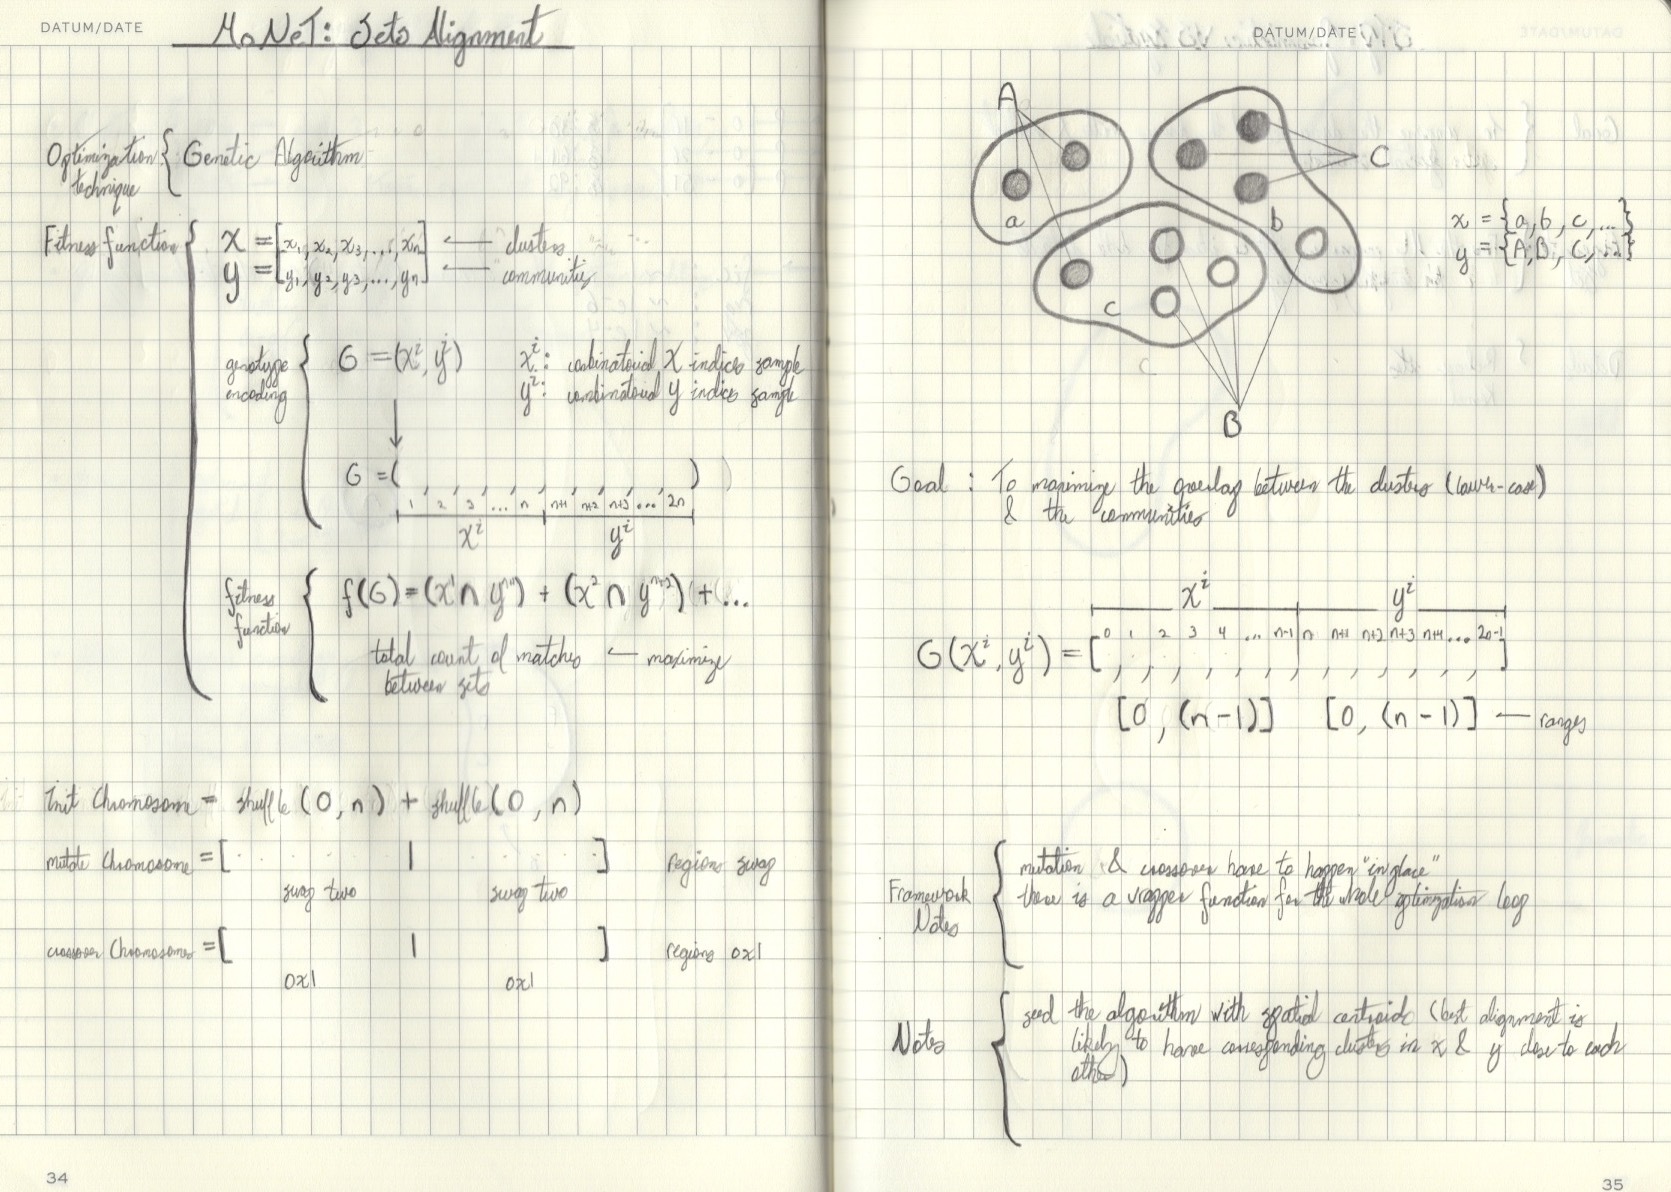 DATUM/DATE
MoNeT: Sets Alignment
Optimization technique { Genetic Algorithm
Fitness function
x = [x₁, x₂, x₃, ..., xₙ] ← clusters
y = [y₁, y₂, y₃, ..., yₙ] ← communities
genotype encoding
G = (xⁱ, yⁱ)
xⁱ: combinatorial X indices sample
yⁱ: combinatorial y indices sample
↓
G = ( , , , , , , , , )
1 2 3 ... n n+1 n+2 n+3 ... 2n
xⁱ yⁱ
fitness function
f(G) = (x¹ ∩ yⁿ⁺¹) + (x² ∩ yⁿ⁺²) + ...
total count of matches ← maximize
between sets
Init Chromosome = shuffle (0, n) + shuffle (0, n)
mutate Chromosome = [ | ] regions swap
swap two swap two
crossover Chromosomes = [ | ] regions ox1
ox1 ox1
34
DATUM/DATE
A
C
a
b
x = {a, b, c, ...}
y = {A, B, C, ...}
c
B
Goal : To maximize the overlap between the clusters (lower-case)
& the communities
xⁱ yⁱ
0 1 2 3 4 ... n-1 n n+1 n+2 n+3 n+4 ... 2n-1
G(xⁱ, yⁱ) = [ , , , , , , , , , , , ]
[0, (n-1)] [0, (n-1)] — ranges
Framework Notes
mutation & crossover have to happen "in place"
there is a wrapper function for the whole optimization loop
Notes
seed the algorithm with spatial centroids (best alignment is
likely to have corresponding clusters in x & y close to each
other)
35